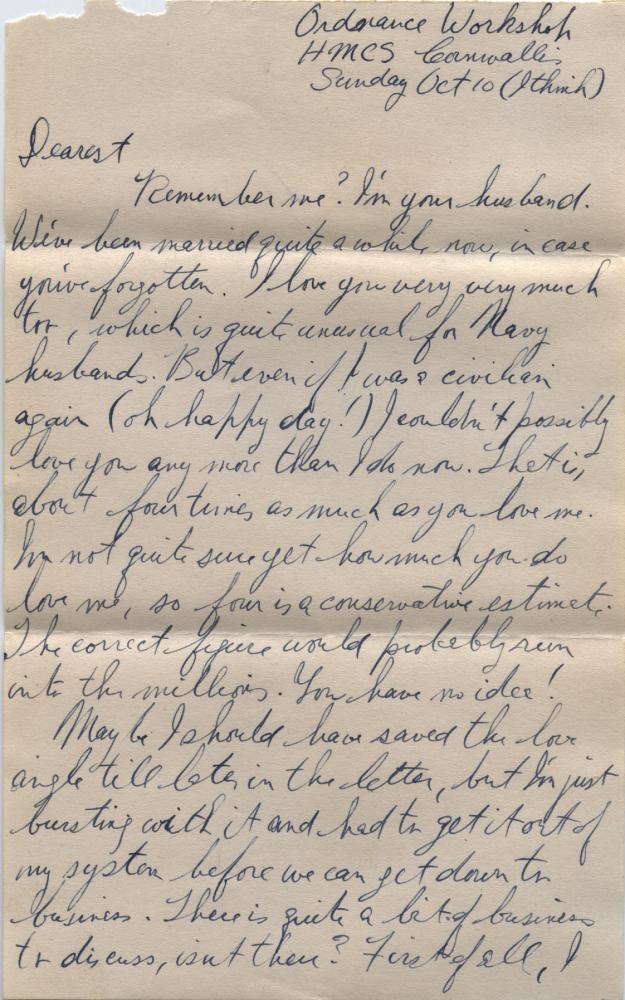 Ordnance Workshop
HMCS Cornwallis
Sunday Oct 10 (I think)
Dearest
Remember me? I'm your husband.
We've been married quite a while now, in case
you've forgotten. I love you very very much
too, which is quite unusual for Navy
husbands. But even if I was a civilian
again (oh happy day!) I couldn't possibly
love you any more than I do now. That is,
about four times as much as you love me.
I'm not quite sure yet how much you do
love me, so four is a conservative estimate.
The correct figure would probably run
into the millions. You have no idea!
Maybe I should have saved the love
angle till later in the letter, but I'm just
bursting with it and had to get it out of
my system before we can get down to
business. There is quite a bit of business
to discuss, isn't there? First of all, I